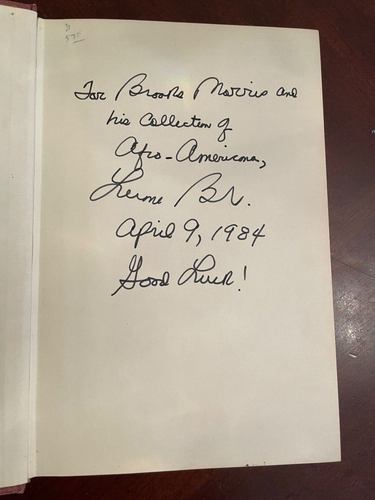 For Brooks Morris and
his Collection of
Afro-Americana,
Lerone B
April 9, 1984
Good Luck!